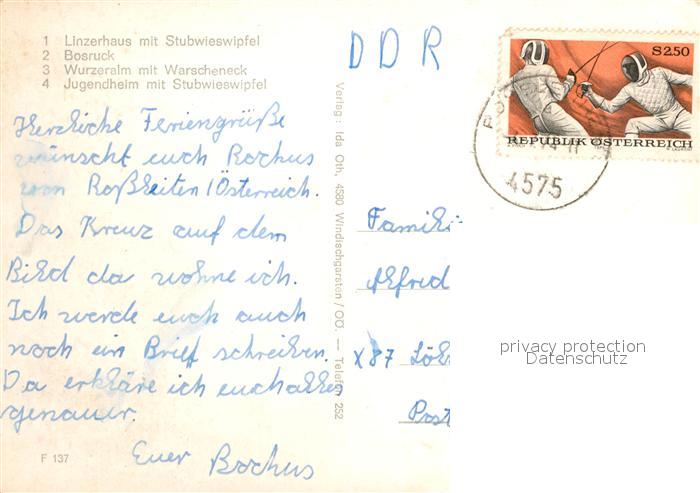 1 Linzerhaus mit Stubwieswipfel
2 Bosruck
3 Wurzeralm mit Warscheneck
4 Jugendheim mit Stubwieswipfel
Herzliche Feriengrüße
wünscht euch Rochus
von Roßleiten/Österreich.
Das Kreuz auf dem
Bild da wohne ich.
Ich werde euch auch
noch ein Brief schreiben.
Da erkläre ich euch alles
genauer.
Euer Rochus
F 137
Verlag: Ida Oth, 4580 Windischgarsten / OÖ. — Telefon 252
DDR
S 2.50
REPUBLIK ÖSTERREICH
4575
Famili
Alfred
X87 Löb
Post
privacy protection
Datenschutz